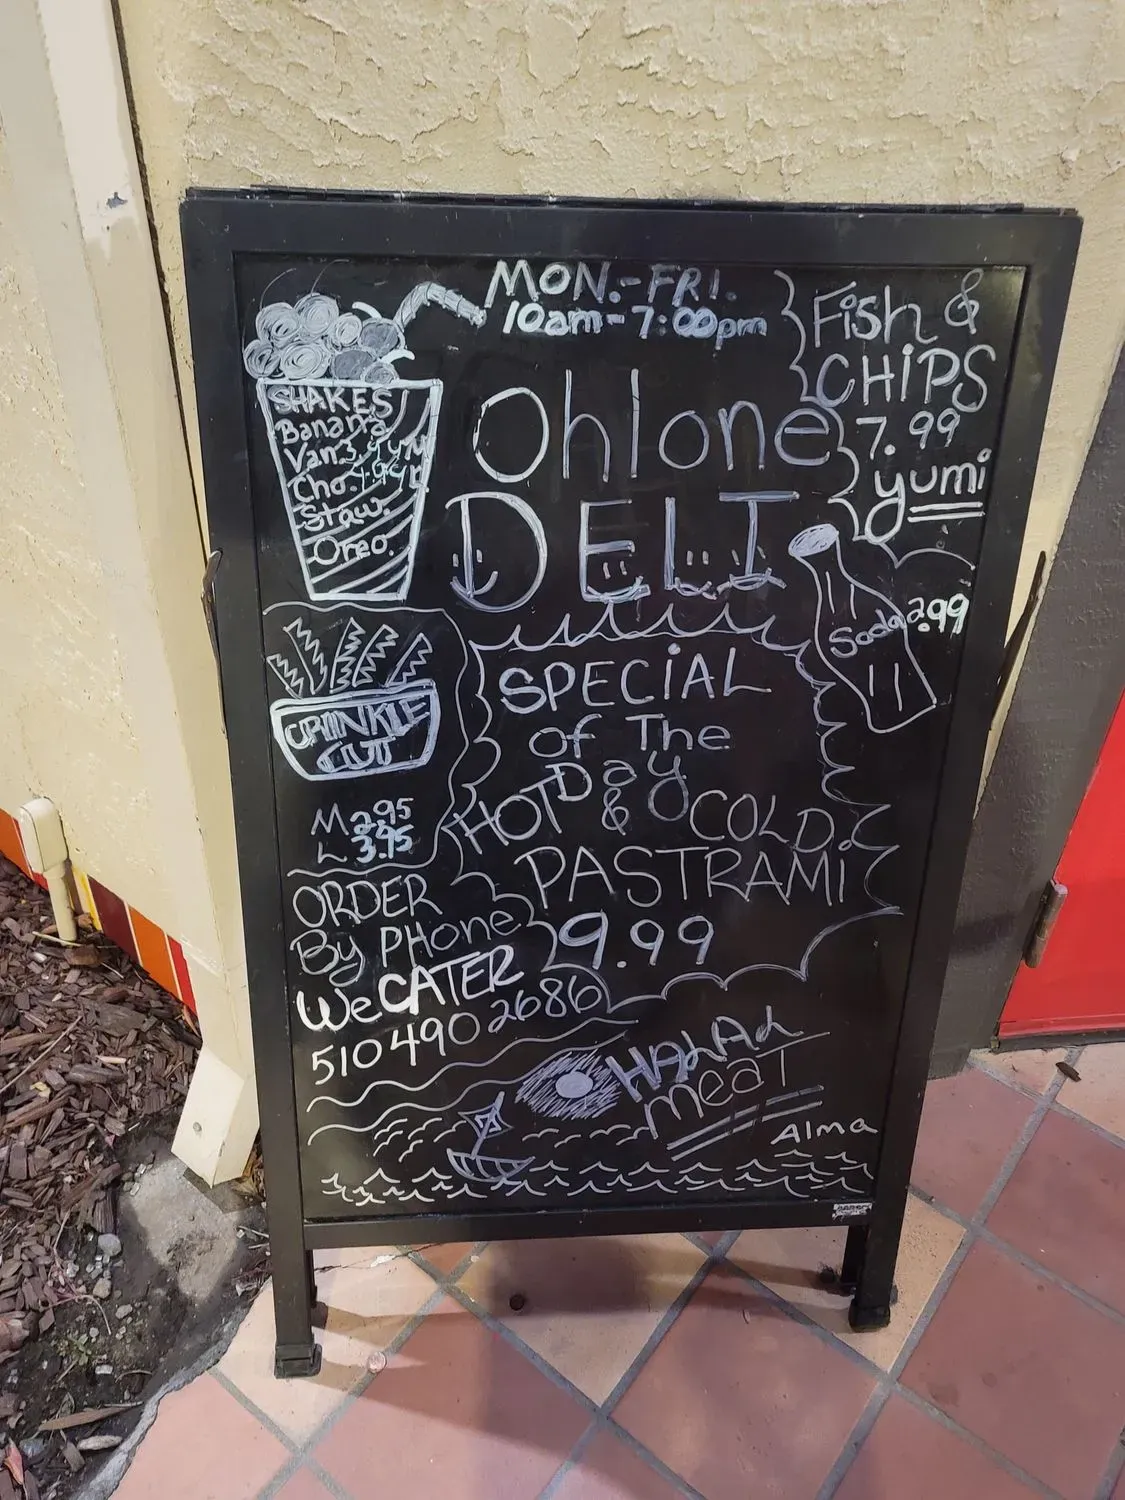 MON.-FRI.
10am-7:00pm
Fish &
CHIPS
7.99
yumi
Ohlone
DELI
SHAKES
Banana
Van.
Cho.
Staw.
Oreo.
Soda 2.99
CRINKLE
CUT
M 2.95
L 3.95
SPECIAL
of The
Day
HOT & COLD
PASTRAMI
9.99
ORDER
By PHone
We CATER
510 490 2686
HALAL
meat
Alma